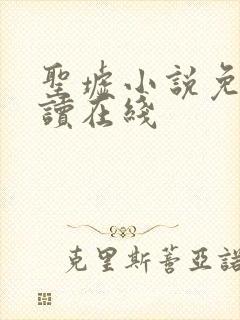 聖墟小說免
讀在綫
克里斯蒂亞諾